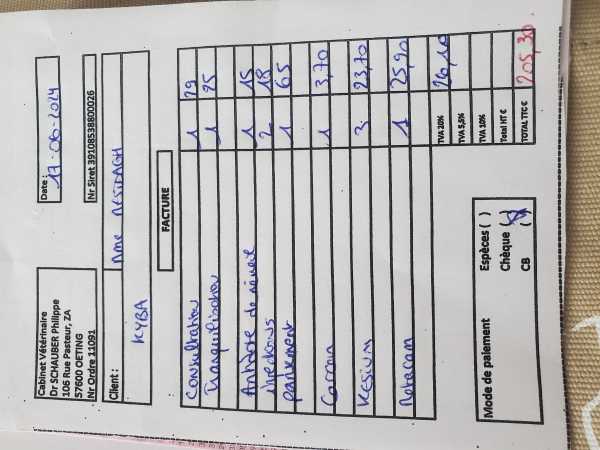 Cabinet Vétérinaire
Dr SCHAUBER Philippe
106 Rue Pasteur, ZA
57600 OETING
Nr Ordre 11091
Date :
17-06-2024
Nr Siret 39108538800026
Client : Mme
KYBA
FACTURE
Consultation 1 29
Tranquilisation 1 25
Antidote de 1 15
Injections 2 18
pansement 1 65
1 3,70
Kesium 3 23,70
1 25,90
TVA 20% 26,10
TVA 5,5%
TVA 10%
Total HT €
TOTAL TTC € 205,30
Mode de paiement
Espèces ( )
Chèque ( )
CB ( )